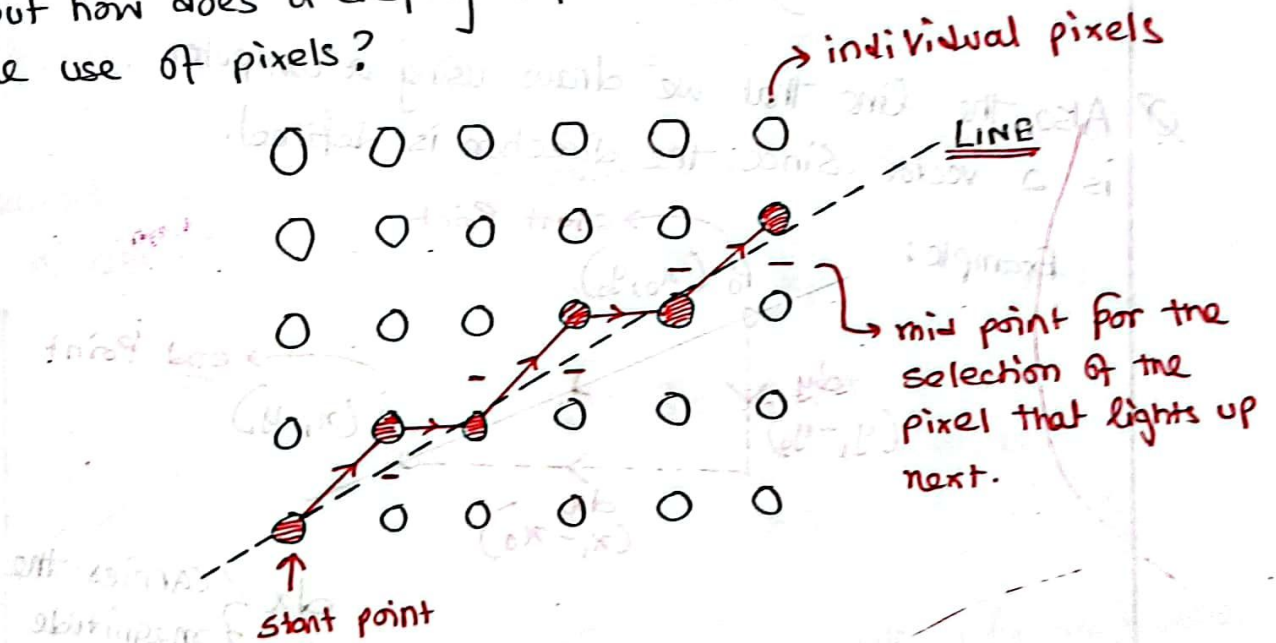 but how does a
e use of pixels?
individual pixels
LINE
mid point for the
selection of the
pixel that lights up
next.
start point